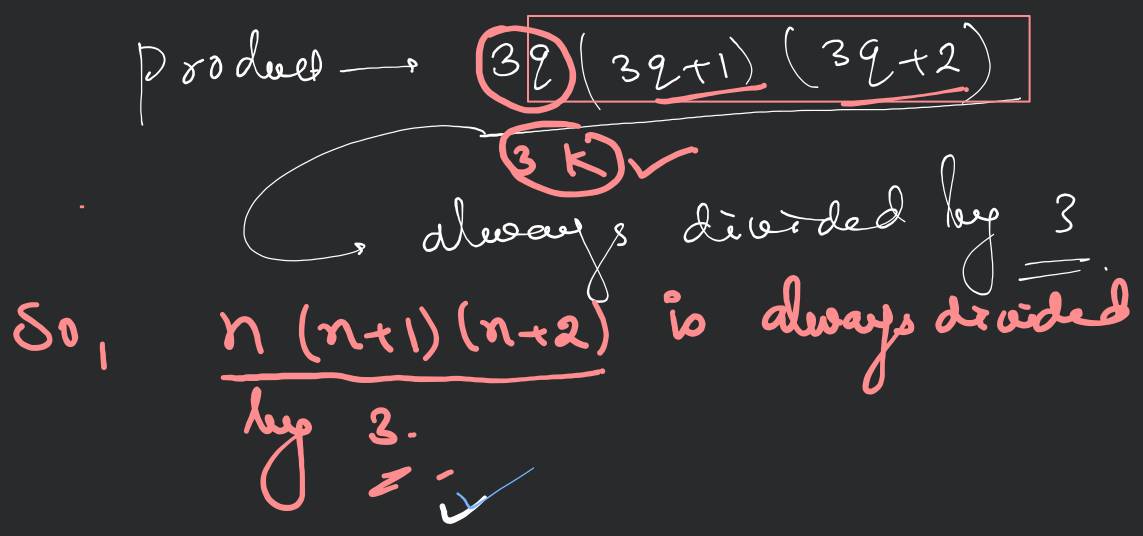 Product → 3q (3q+1) (3q+2)
3 K ✓
→ always divided by 3
So, n (n+1) (n+2) is always divided
by 3.